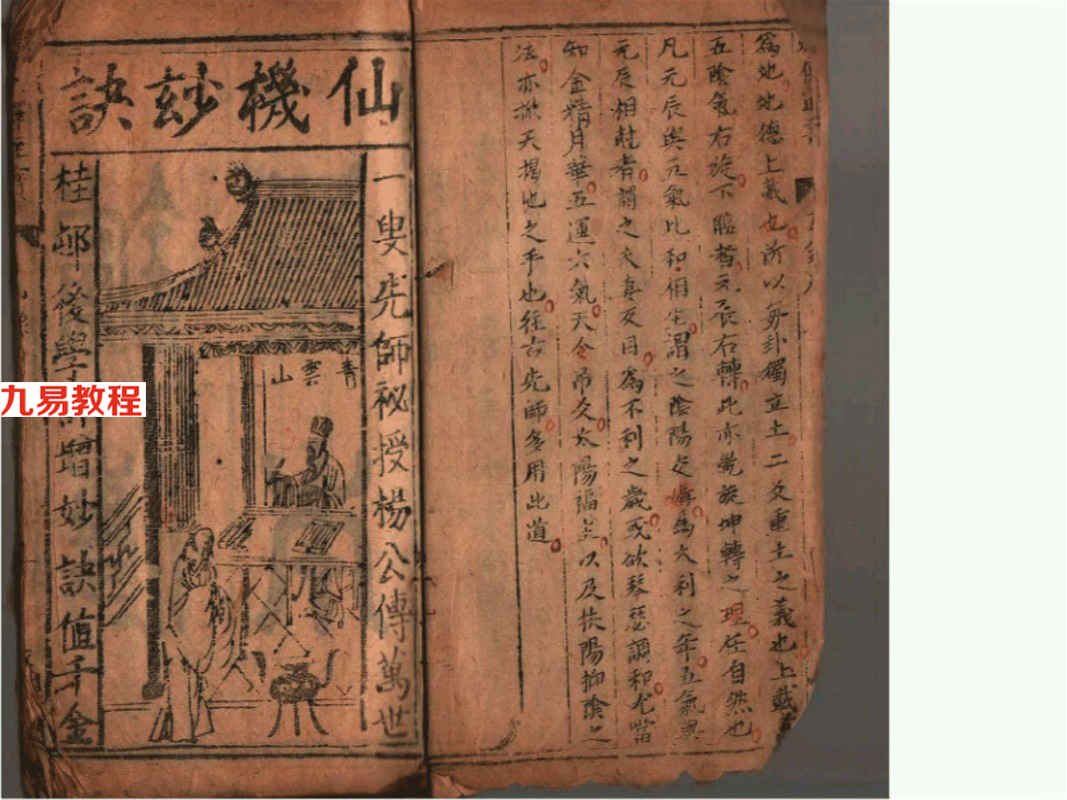 為地地德上載也所以身卦獨立土二爻重土之義也上載
五陰氣右旋下臨者元辰右轉此亦乾旋坤轉之理任自然也
凡元辰與元氣比和相宅謂之陰陽交媾為大利之年五氣與
元辰相尅者謂之夫妻反目為不利之歲或欲琴瑟調和尤當
知金精月華五運六氣天令吊爻太陽臨以及扶陽抑陰之
法亦掀天揭地之手也往古先師多用此道
仙機妙訣
一叟先師祕授楊公傳萬世
青雲山
桂邨後學增妙訣值千金
九易教程